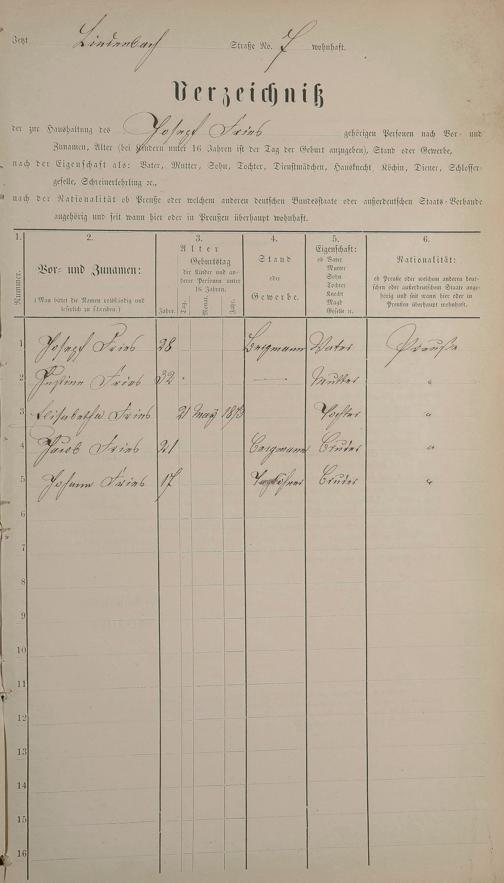 Jetzt Lindenbach Straße No. 7 wohnhaft.
Verzeichniß
der zur Haushaltung des Joseph Fries gehörigen Personen nach Vor- und
Zunamen, Alter (bei Kindern unter 16 Jahren ist der Tag der Geburt anzugeben), Stand oder Gewerbe,
nach der Eigenschaft als: Vater, Mutter, Sohn, Tochter, Dienstmädchen, Hausknecht, Köchin, Diener, Schlosser-
geselle, Schreinerlehrling ꝛc.,
nach der Nationalität ob Preuße oder welchem anderen deutschen Bundesstaate oder außerdeutschen Staats-Verbande
angehörig und seit wann hier oder in Preußen überhaupt wohnhaft.
1. 2. 3. 4. 5. 6.
Nummer.
Vor- und Zunamen:
(Man bittet die Namen vollständig und
leserlich zu schreiben.)
Alter
Geburtstag
der Kinder und an-
derer Personen unter
16 Jahren.
Jahre. Tag. Monat. Jahr.
Stand
oder
Gewerbe.
Eigenschaft:
ob Vater
Mutter
Sohn
Tochter
Knecht
Magd
Geselle ꝛc.
Nationalität:
ob Preuße oder welchem anderen deut-
schen oder außerdeutschen Staate ange-
hörig und seit wann hier oder in
Preußen überhaupt wohnhaft.
1 Joseph Fries 28 Bergmann Vater Preuße
2 Justine Fries 32 — Mutter "
3 Elisabetha Fries 21 May 1873 Tochter "
4 Jacob Fries 21 Bergmann Bruder "
5 Johann Fries 17 Taglöhner Bruder "
6
7
8
9
10
11
12
13
14
15
16